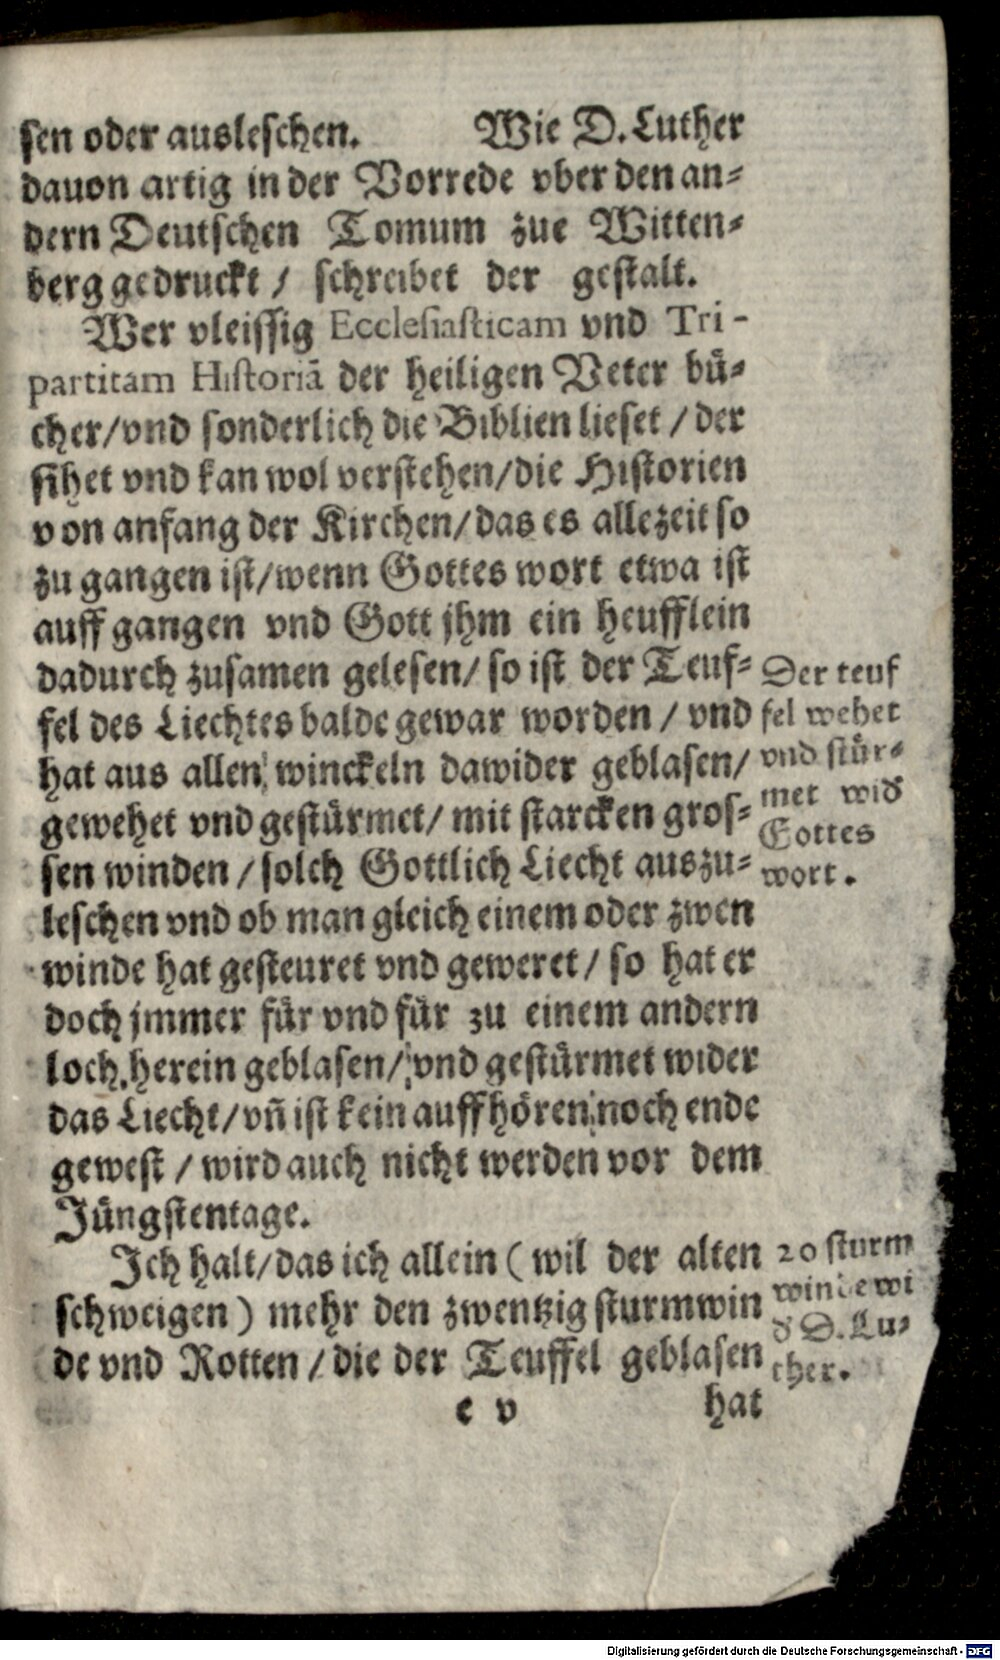 sen oder ausleschen. Wie D. Luther
dauon artig in der Vorrede vber den an⸗
dern Deutschen Tomum zue Witten⸗
berg gedruckt / schreibet der gestalt.
Wer vleissig Ecclesiasticam vnd Tri-
partitam Historiā der heiligen Veter bü⸗
cher/vnd sonderlich die Biblien lieset / der
sihet vnd kan wol verstehen/die Historien
von anfang der Kirchen/das es allezeit so
zu gangen ist/wenn Gottes wort etwa ist
auff gangen vnd Gott jhm ein heufflein
dadurch zusamen gelesen/ so ist der Teuf⸗
fel des Liechtes balde gewar worden / vnd
hat aus allen winckeln dawider geblasen/
gewehet vnd gestürmet/ mit starcken gros⸗
sen winden / solch Gottlich Liecht auszu⸗
leschen vnd ob man gleich einem oder zwen
winde hat gesteuret vnd geweret / so hat er
doch jmmer für vnd für zu einem andern
loch herein geblasen/ vnd gestürmet wider
das Liecht/vñ ist kein auffhören noch ende
gewest / wird auch nicht werden vor dem
Jüngstentage.
Ich halt/das ich allein ( wil der alten
schweigen ) mehr den zwentzig sturmwin
de vnd Rotten / die der Teuffel geblasen
e v hat
Der teuf
fel wehet
vnd stür⸗
met wid
Gottes
wort.
20 sturm
winde wi
d D. Lu⸗
ther.
Digitalisierung gefördert durch die Deutsche Forschungsgemeinschaft - DFG